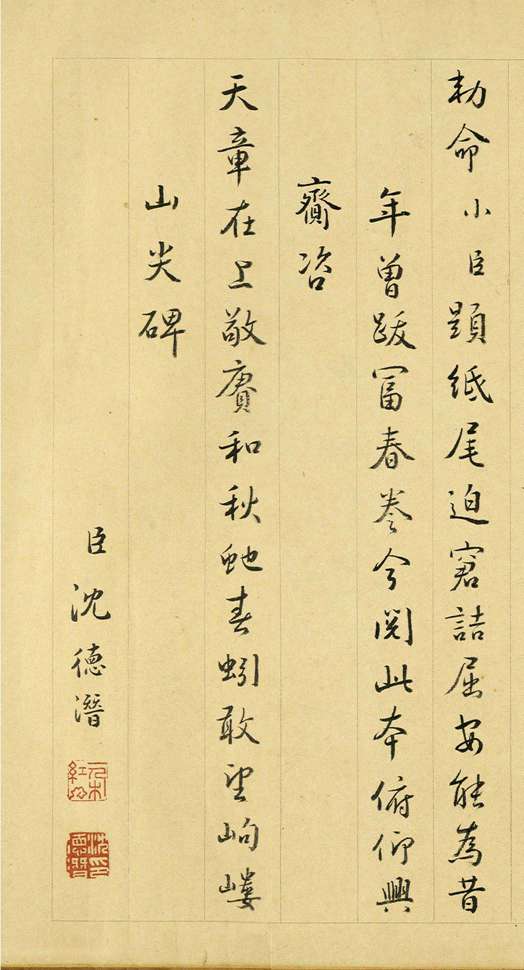 勅命小臣題紙尾迫窘詰屈安能為昔
年曾跋冨春卷今閱此本俯仰興
齎咨
天章在上敬賡和秋蛇春蚓敢望岣嶁
山尖碑
臣沈德潛